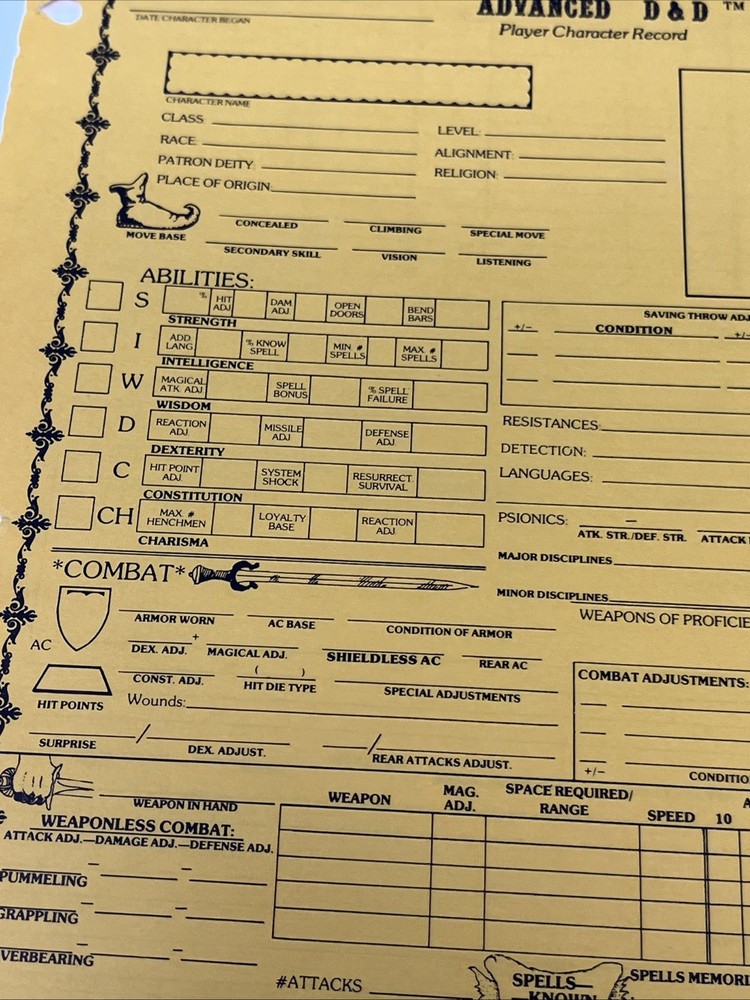 DATE CHARACTER BEGAN
ADVANCED D & D ™
Player Character Record
CHARACTER NAME
CLASS:
LEVEL:
RACE:
ALIGNMENT:
PATRON DEITY:
RELIGION:
PLACE OF ORIGIN:
MOVE BASE
CONCEALED CLIMBING SPECIAL MOVE
SECONDARY SKILL VISION LISTENING
ABILITIES:
S % HIT ADJ DAM ADJ. OPEN DOORS BEND BARS
STRENGTH
I ADD LANG % KNOW SPELL MIN. # SPELLS MAX. # SPELLS
INTELLIGENCE
W MAGICAL ATK. ADJ. SPELL BONUS % SPELL FAILURE
WISDOM
D REACTION ADJ. MISSILE ADJ. DEFENSE ADJ.
DEXTERITY
C HIT POINT ADJ. SYSTEM SHOCK RESURRECT. SURVIVAL
CONSTITUTION
CH MAX. # HENCHMEN LOYALTY BASE REACTION ADJ.
CHARISMA
SAVING THROW ADJ
+/- CONDITION +/-
RESISTANCES:
DETECTION:
LANGUAGES:
PSIONICS: –
ATK. STR./DEF. STR. ATTACK
MAJOR DISCIPLINES
MINOR DISCIPLINES
WEAPONS OF PROFICIE
*COMBAT*
AC
ARMOR WORN AC BASE CONDITION OF ARMOR
+
DEX. ADJ. MAGICAL ADJ. SHIELDLESS AC REAR AC
( )
CONST. ADJ. HIT DIE TYPE SPECIAL ADJUSTMENTS
HIT POINTS
Wounds:
/ /
SURPRISE DEX. ADJUST. REAR ATTACKS ADJUST.
COMBAT ADJUSTMENTS:
+/- CONDITIO
WEAPON IN HAND
WEAPONLESS COMBAT:
ATTACK ADJ.—DAMAGE ADJ.—DEFENSE ADJ.
PUMMELING – –
GRAPPLING – –
VERBEARING – –
WEAPON MAG. ADJ. SPACE REQUIRED/ RANGE SPEED 10 A
#ATTACKS
SPELLS—
KNOWN
SPELLS MEMORI